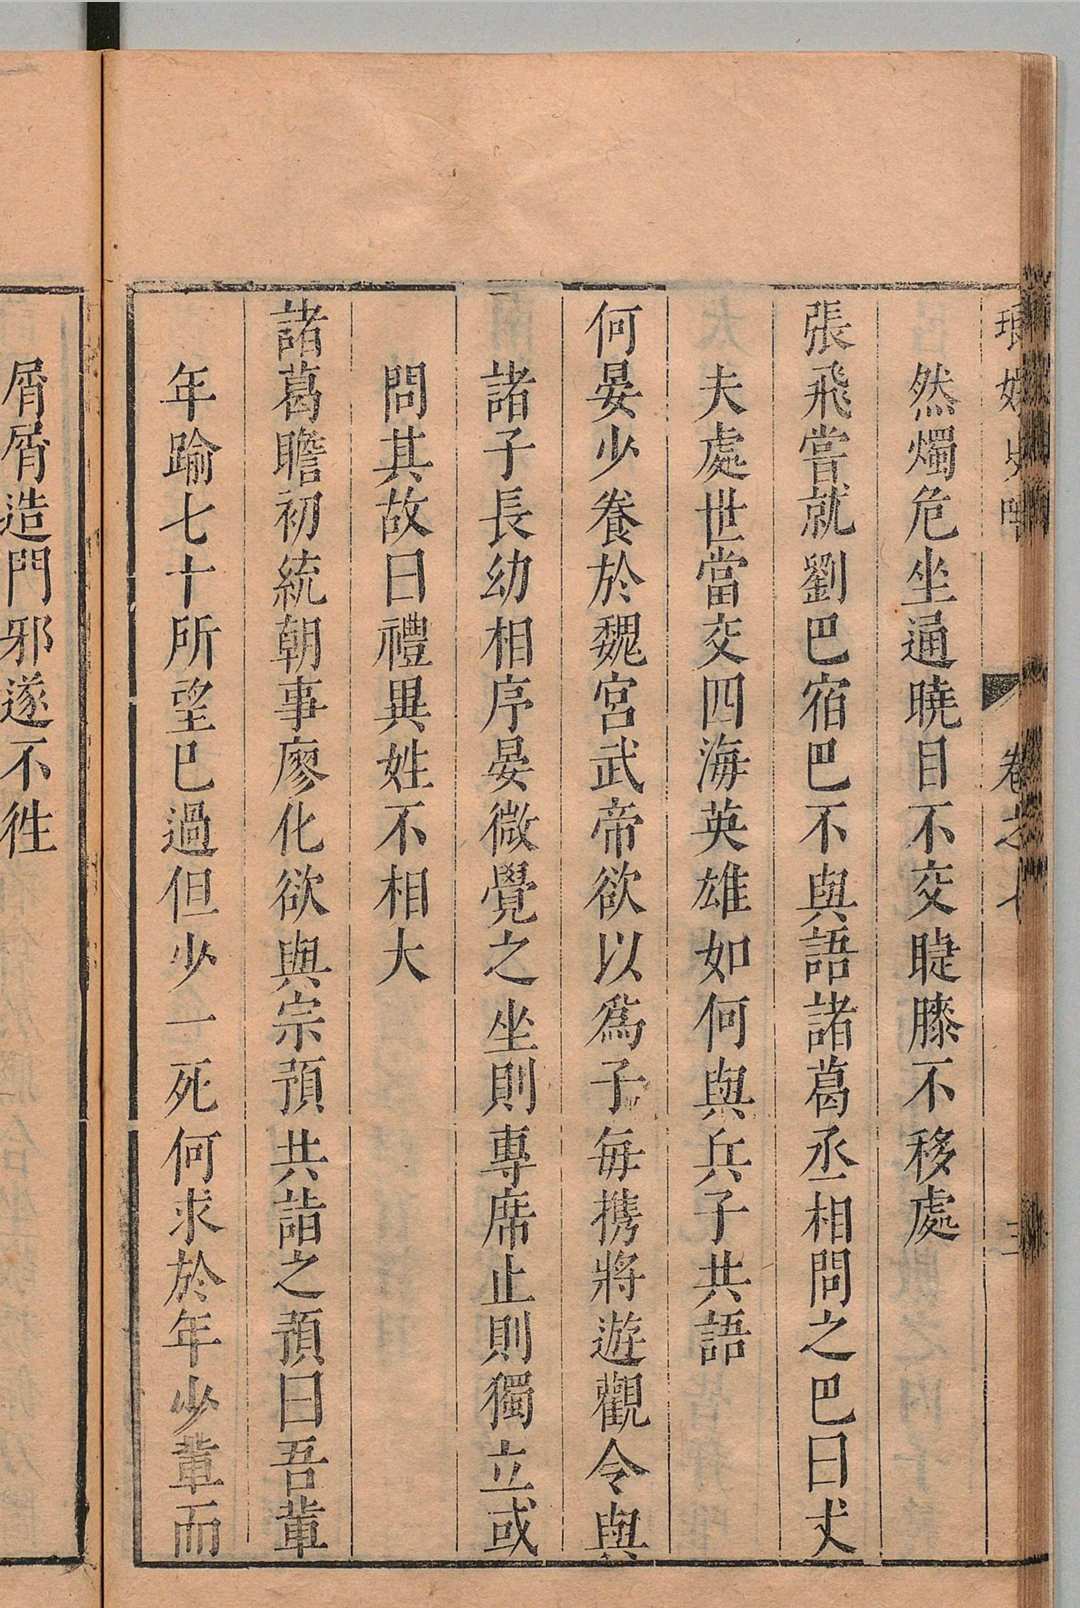 然燭危坐通曉目不交睫膝不移處
張飛嘗就劉巴宿巴不與語諸葛丞相問之巴曰丈
夫處世當交四海英雄如何與兵子共語
何晏少養於魏宮武帝欲以爲子每携將遊觀令與
諸子長幼相序晏微覺之坐則專席止則獨立或
問其故曰禮異姓不相大
諸葛瞻初統朝事廖化欲與宗預共詣之預曰吾輩
年踰七十所望已過但少一死何求於年少輩而
屑屑造門邪遂不徃
卷之七